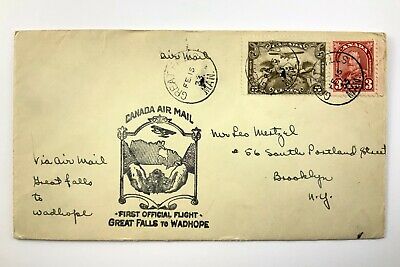 air mail
GREAT
FE 15
MAN.
CANADA
3 3
CANADA AIR MAIL
Mr Leo Meitzel
# 56 South Portland Street
Brooklyn
N.Y.
Via Air Mail
Great falls
to
wadhope
- FIRST OFFICIAL FLIGHT -
GREAT FALLS TO WADHOPE